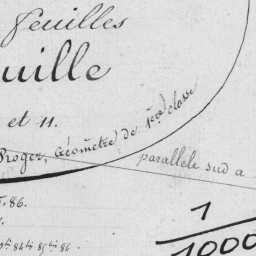 feuilles
uille
et 11.
Roger, Géomètre de 1ère classe
parallèle sud a
86.
1
1000